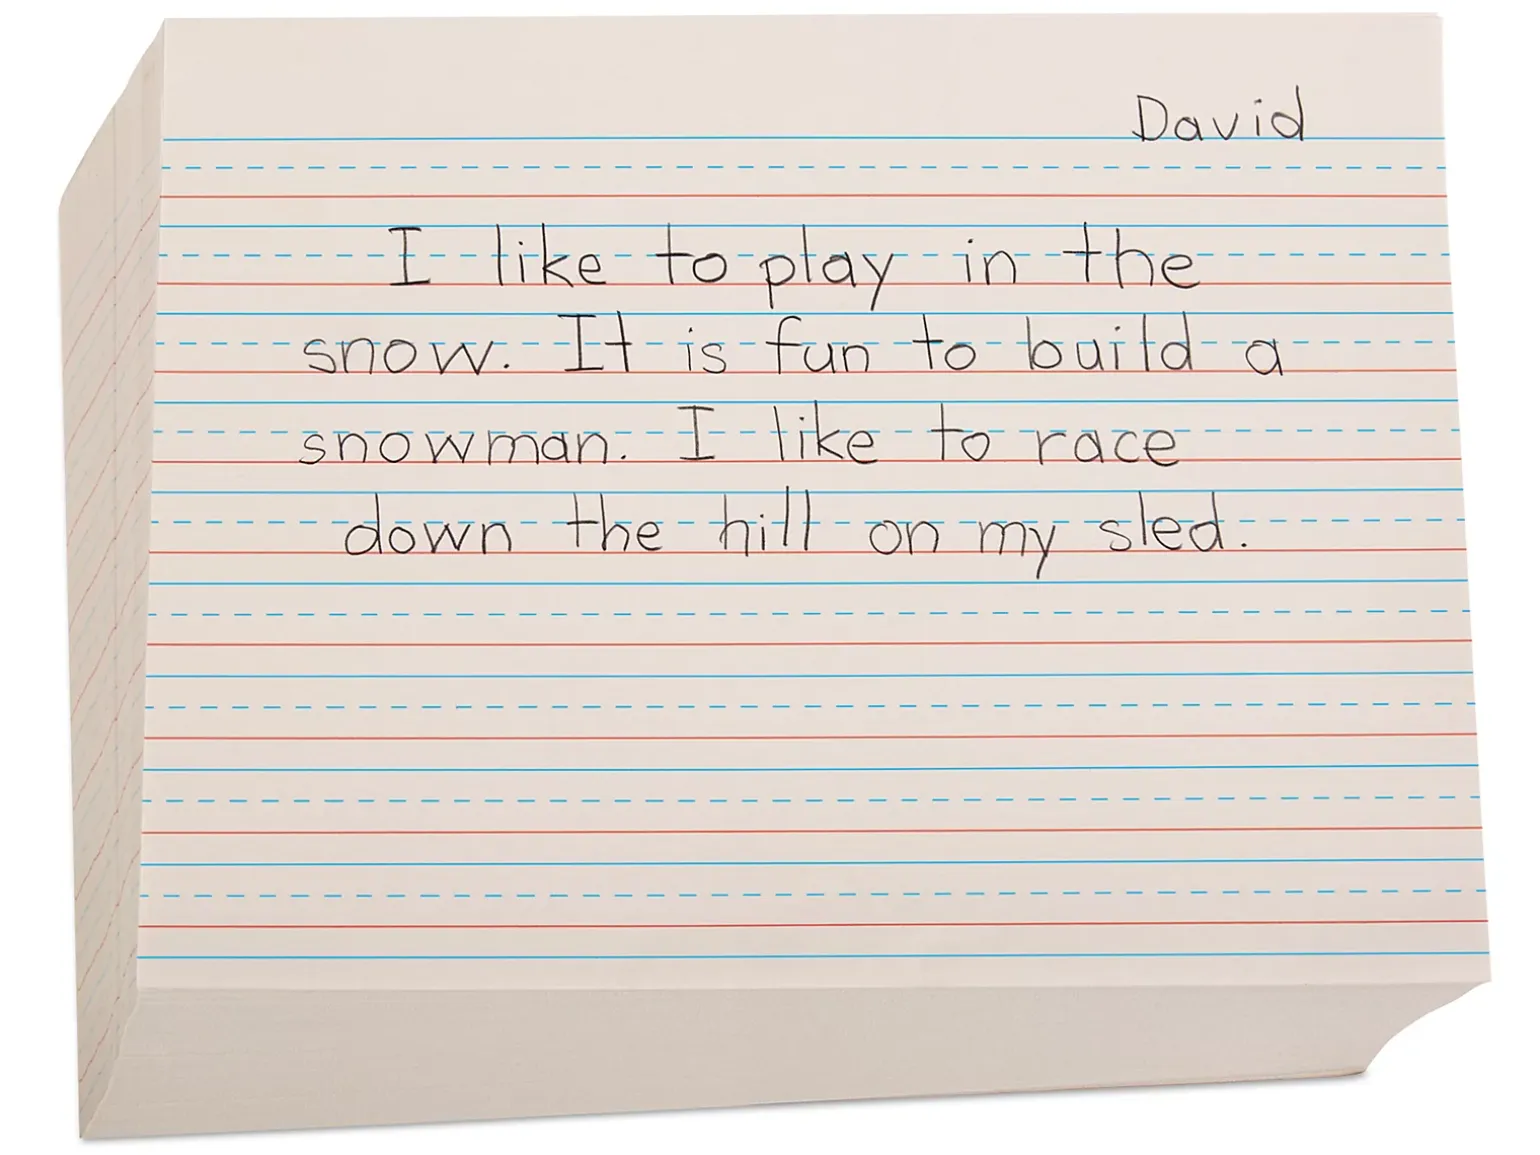 David
I like to play in the
snow. It is fun to build a
snowman. I like to race
down the hill on my sled.